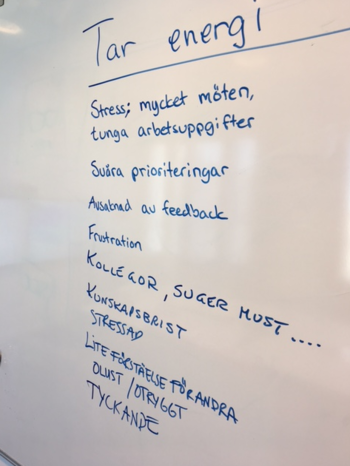 Tar energi
Stress; mycket möten,
tunga arbetsuppgifter
Svåra prioriteringar
Avsaknad av feedback
Frustration
KOLLEGOR, SUGER MUST....
KUNSKAPSBRIST
STRESSAD
LITE FÖRSTÅELSE FÖR ANDRA
OLUST / OTRYGGT
TYCKANDE